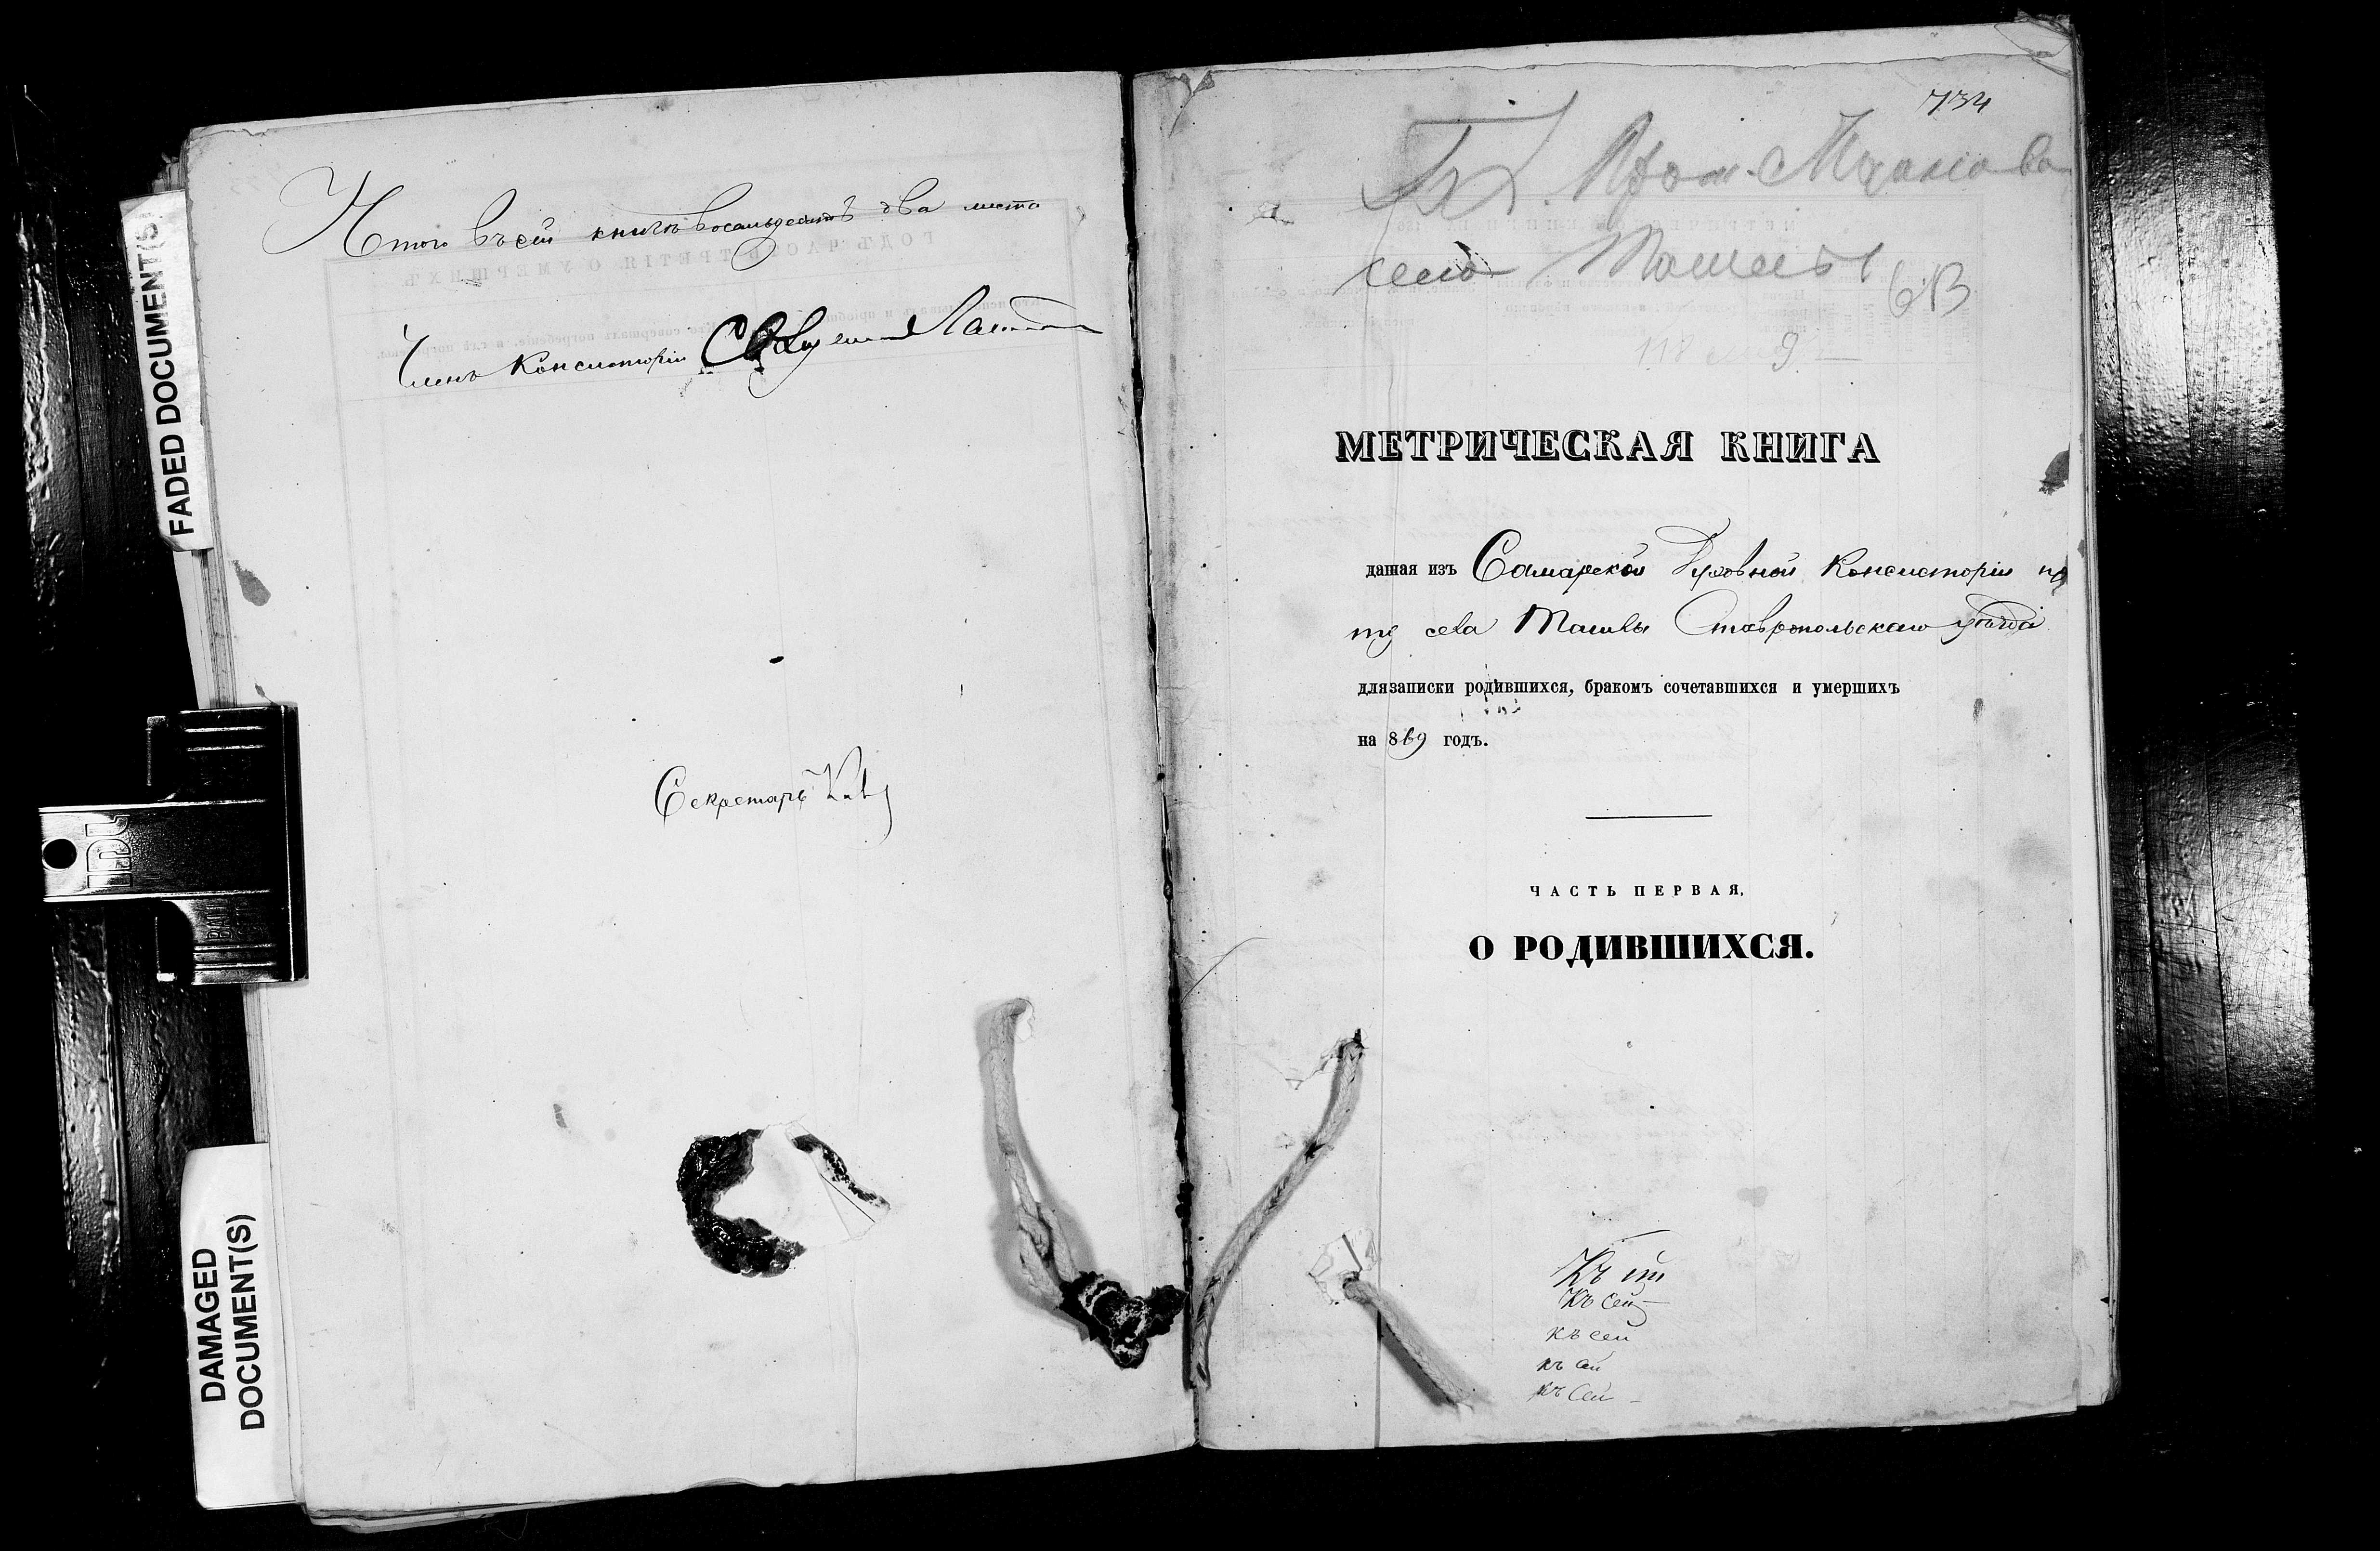 Итого въ сей книгѣ восемьдесятъ два листа
Членъ Консисторіи Священникъ
Секретарь
FADED DOCUMENT(S)
DAMAGED
DOCUMENT(S)
734
село Ташлы
118
МЕТРИЧЕСКАЯ КНИГА
данная изъ Самарской Духовной Консисторіи при
ту села Ташлы Ставропольскаго уѣзда
для записки родившихся, бракомъ сочетавшихся и умершихъ
на 869 годъ.
ЧАСТЬ ПЕРВАЯ,
О РОДИВШИХСЯ.
Къ
Къ сей
къ сей
къ сей
къ сей